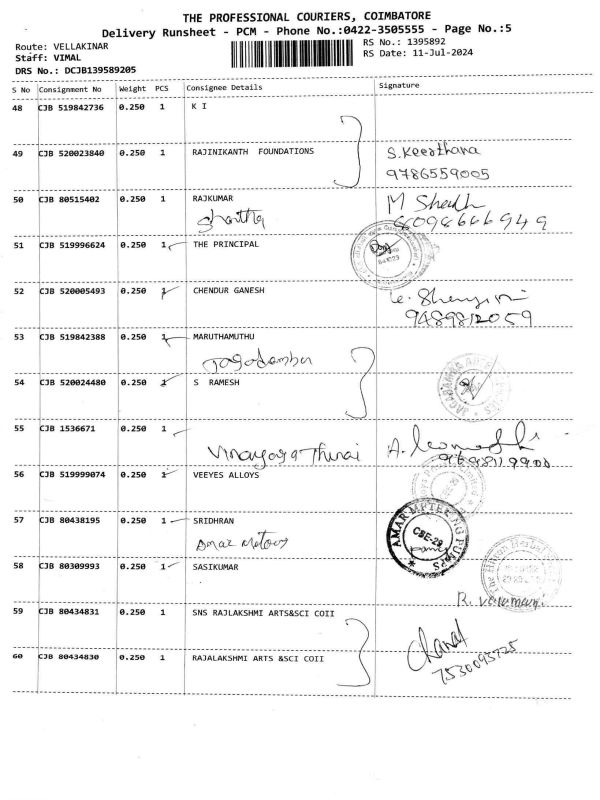 THE PROFESSIONAL COURIERS, COIMBATORE
Delivery Runsheet - PCM - Phone No.:0422-3505555 - Page No.:5
Route: VELLAKINAR
RS No.: 1395892
Staff: VIMAL
RS Date: 11-Jul-2024
DRS No.: DCJB139589205
S No Consignment No Weight PCS Consignee Details Signature
48 CJB 519842736 0.250 1 K I
49 CJB 520023840 0.250 1 RAJINIKANTH FOUNDATIONS S.Keerthana
9786559005
50 CJB 80515402 0.250 1 RAJKUMAR M
51 CJB 519996624 0.250 1 THE PRINCIPAL
52 CJB 520005493 0.250 1 CHENDUR GANESH
9489812059
53 CJB 519842388 0.250 1 MARUTHAMUTHU
Jagadamba
54 CJB 520024480 0.250 1 S RAMESH
55 CJB 1536671 0.250 1
Vinayaga Thunai
56 CJB 519999074 0.250 1 VEEYES ALLOYS
57 CJB 80438195 0.250 1 SRIDHRAN
Amar Motors
AMAR METERING PUMPS
CBE-29
58 CJB 80309993 0.250 1 SASIKUMAR
R.
59 CJB 80434831 0.250 1 SNS RAJLAKSHMI ARTS&SCI COII
60 CJB 80434830 0.250 1 RAJALAKSHMI ARTS &SCI COII
7530093725